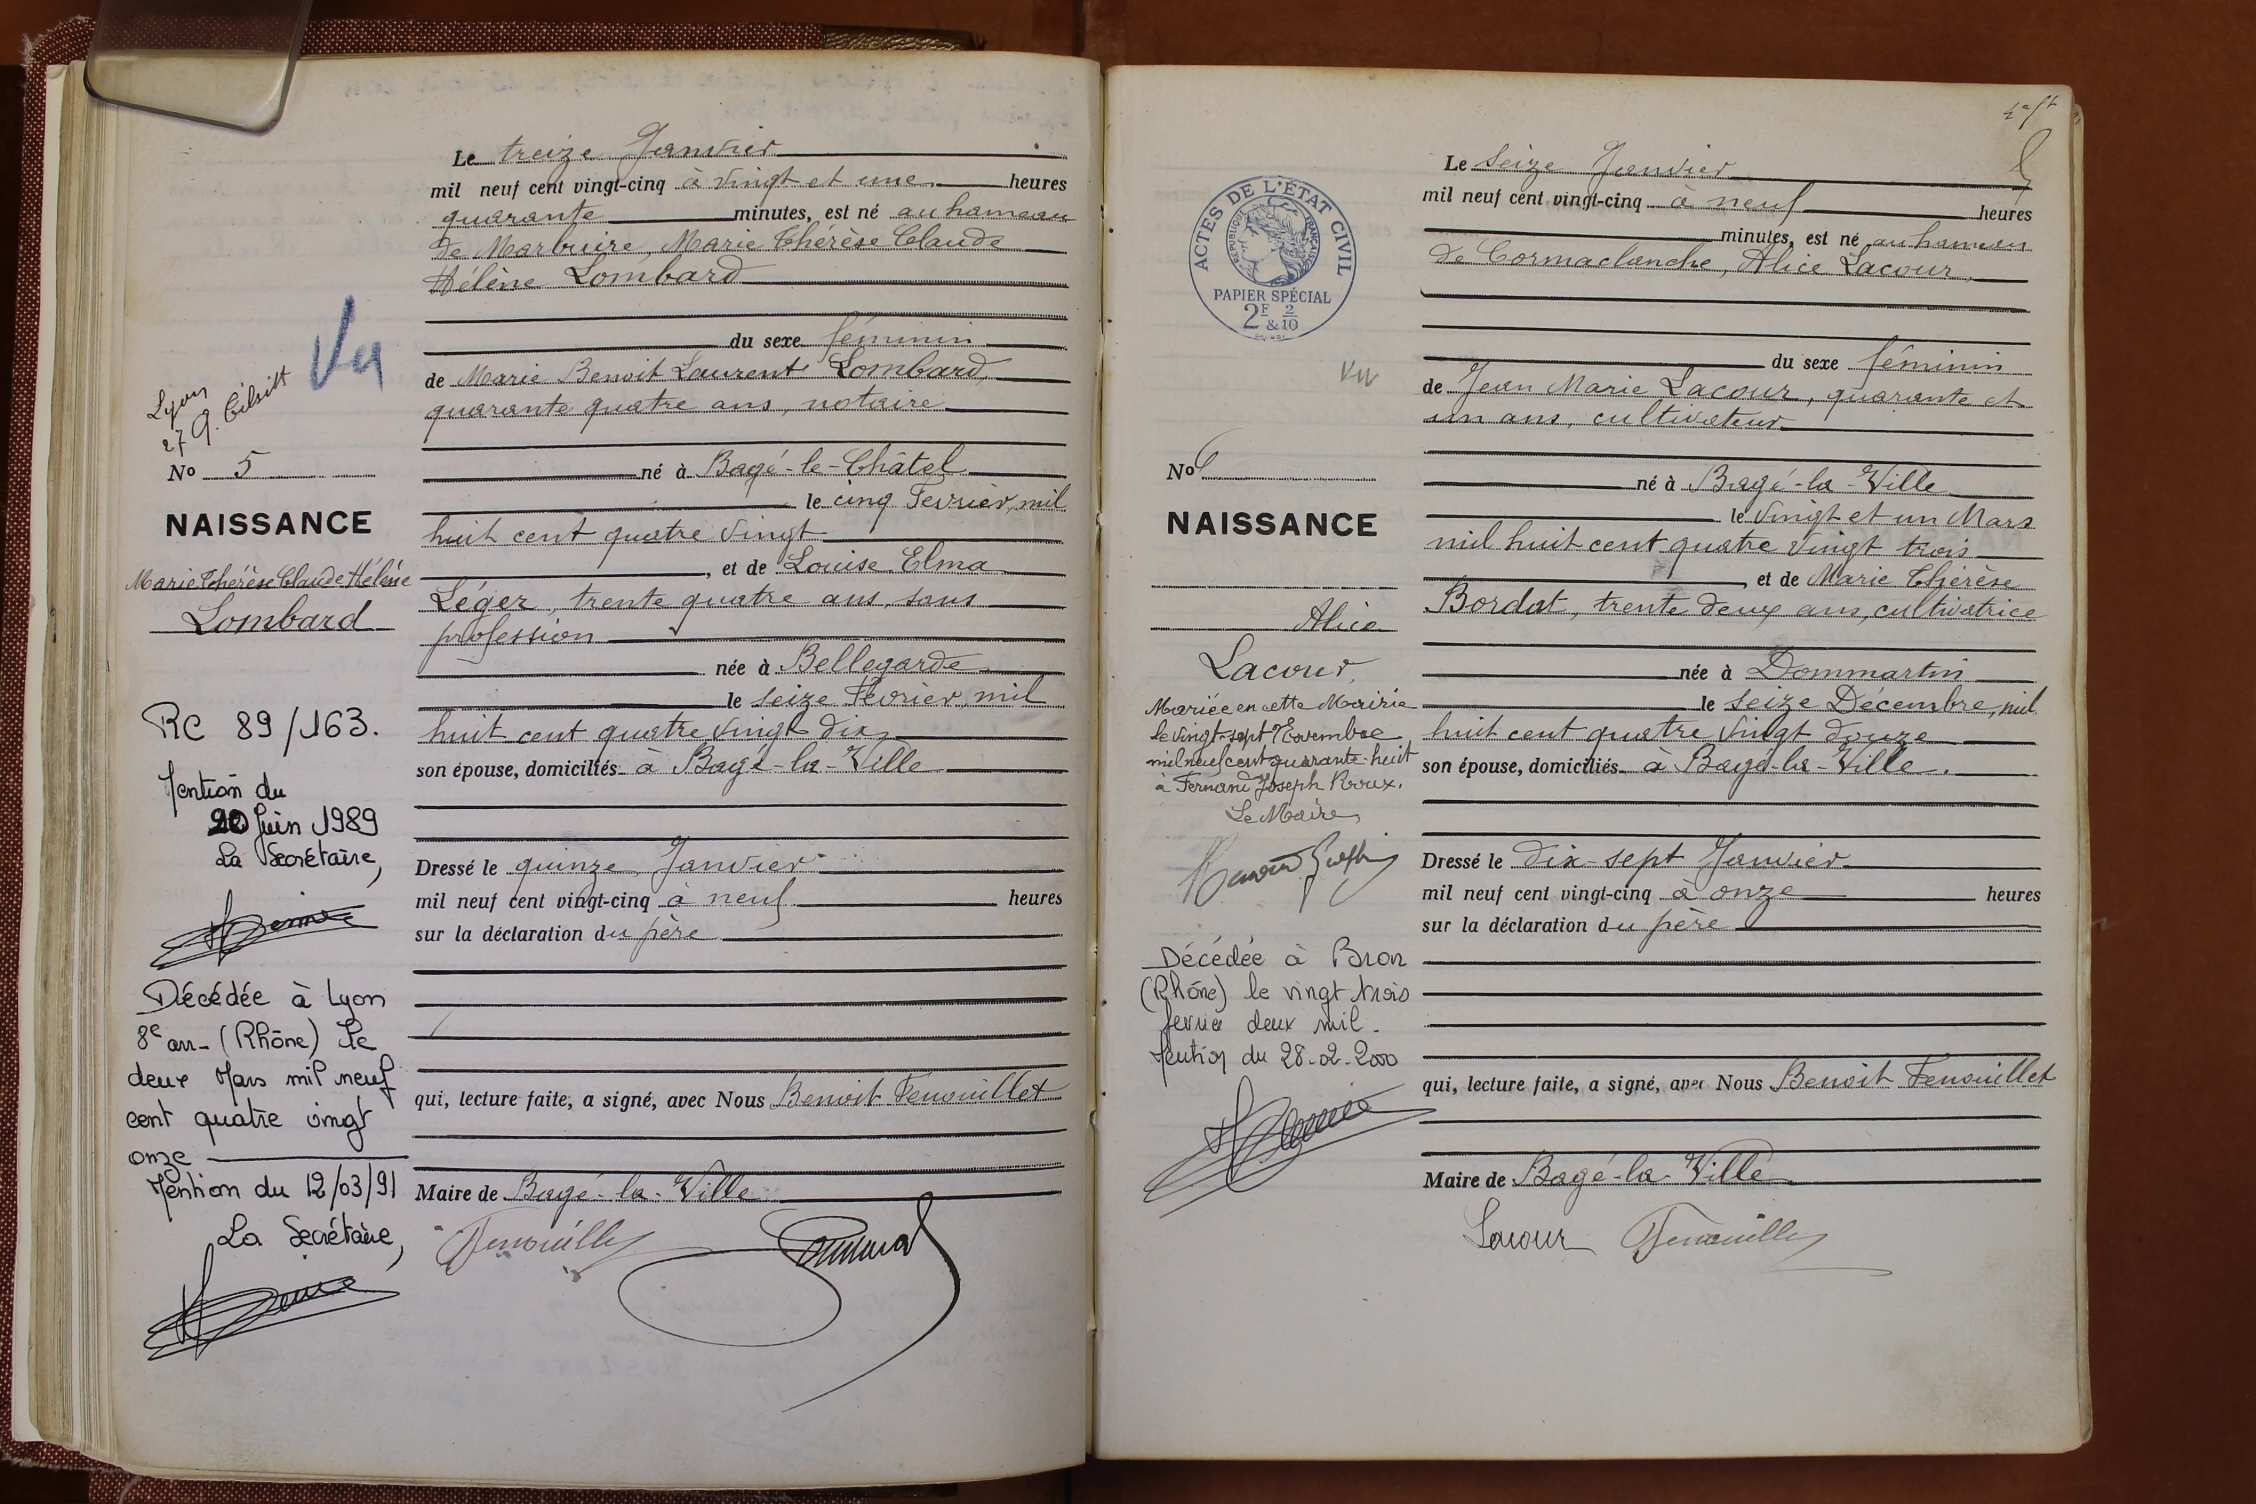 Le treize Janvier
mil neuf cent vingt-cinq à vingt et une heures
quarante minutes, est né au hameau
de Marbuire, Marie Thérèse Claude
Hélène Lombard
du sexe féminin
de Marie Benoit Laurent Lombard,
quarante quatre ans, notaire
né à Bagé-le-Châtel
le cinq Fevrier, mil
huit cent quatre vingt
, et de Louise Elma
Léger, trente quatre ans, sans
profession
née à Bellegarde
le seize Fevrier, mil
huit cent quatre vingt dix
son épouse, domiciliés à Bagé-la-Ville
Dressé le quinze Janvier
mil neuf cent vingt-cinq à neuf heures
sur la déclaration du père
qui, lecture faite, a signé, avec Nous Benoit Fenouillet
Maire de Bagé-la-Ville
Vu
Lyon
27 Q. Tilsitt
No 5
NAISSANCE
Marie Thérèse Claude Hélène
Lombard
RC 89/163.
Mention du
20 Juin 1989
La Secrétaire,
Décédée à Lyon
8e arr- (Rhône) le
deux Mars mil neuf
cent quatre vingt
onze
Mention du 12/03/91
La Secrétaire,
Le Seize Janvier
mil neuf cent vingt-cinq à neuf heures
minutes, est né au hameau
de Cormaclanche, Alice Lacour,
du sexe féminin
de Jean Marie Lacour, quarante et
un ans, cultivateur
né à Bagé-la-Ville
le vingt et un Mars
mil huit cent quatre vingt trois
, et de Marie Thérèse
Bordat, trente deux ans, cultivatrice
née à Dommartin
le seize Décembre, mil
huit cent quatre vingt douze
son épouse, domiciliés à Bagé-la-Ville.
Dressé le dix-sept Janvier
mil neuf cent vingt-cinq à onze heures
sur la déclaration du père
qui, lecture faite, a signé, avec Nous Benoit Fenouillet
Maire de Bagé-la-Ville
Lacour Fenouillet
ACTES DE L'ÉTAT CIVIL
RÉPUBLIQUE FRANÇAISE
PAPIER SPÉCIAL
2F & 2/10
Vu
No 6
NAISSANCE
Alice
Lacour,
Mariée en cette Mairie
le vingt-sept Novembre
mil neuf cent quarante-huit
à Fernand Joseph Roux.
Le Maire,
Décédée à Bron
(Rhône) le vingt trois
fevrier deux mil.
Mention du 28-02-2000